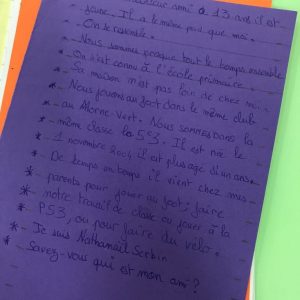 meilleur ami a 13 ans il est
jeune. Il a le même poid que moi.
- On se ressemble.
- Nous sommes presque tout le temps ensemble
- On s'est connu à l'école primaire
- Sa maison n'est pas loin de chez moi.
- Nous jouons au foot dans le même club
* - au Morne-Vert. Nous sommes dans la
* - même classe la 5°3. Il est né le
* - 1 novembre 2004, il est plus agé d'un ans.
* - De temps en temps il vient chez mes
* - parents pour jouer au foot; faire
* - notre travail de classe ou jouer à la
* PS3, ou pour faire du vélo.
* - Je suis Nathanaël Serbin
* - Savez-vous qui est mon ami?